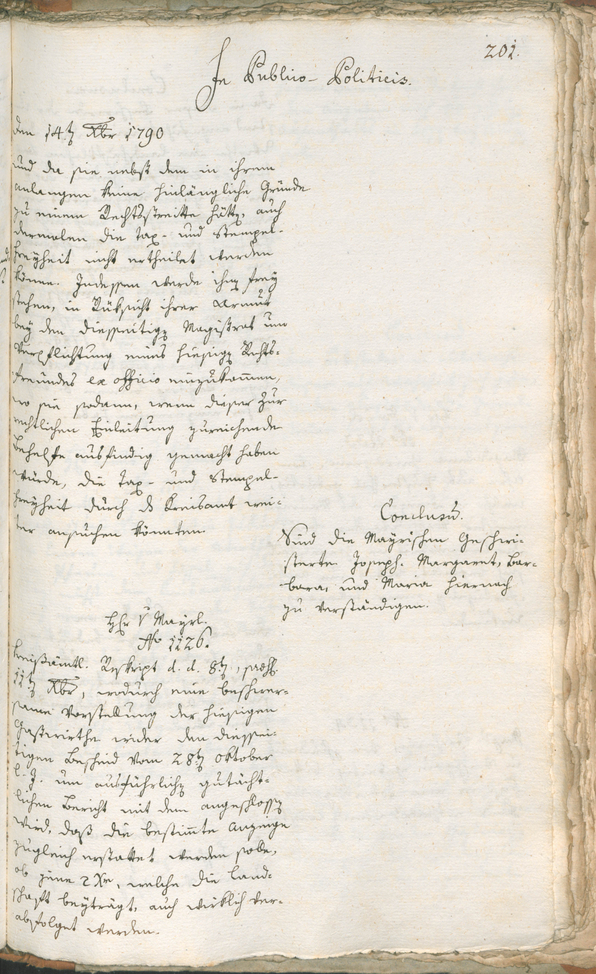 201.
In Publico-Politicis.
den 14t Xbr 1790
und da sie nebst dem in ihrem
anlangen keine hinlängliche Gründe
zu einem Rechtsstreitte hätt, auch
dermalen die Tax- und Stempel-
freyheit nicht ertheilet werden
könne. Indessen werde ihn frey
stehen, in Rüksicht ihrer Armut
bey den diesseitig Magistrat um
Verpflichtung eines hiesig Rechts-
freundes ex officio einzukommen,
wo sie sodann, wenn dieser zur
rechtlichen Einleitung zureichende
Behelfe ausfindig gemacht haben
würde, die Tax- und Stempel-
freyheit durch ds Kreisamt wei-
ter ansuchen könnten.
Conclusum.
Sind die Mayrischen Geschwi-
sterte Joseph, Margaret, Bar-
bara, und Maria hiernach
zu verständigen.
Hr v Mayrl.
No 1126.
Kreisämtl. Reskript d. d. 8t, praes.
11t Xbr, wodurch eine beschwer-
same Vorstellung der hiesigen
Gastwirthe wider den diessei-
tigen Bescheid vom 28t Oktober
l. J. um ausführlich gutächt-
lichen Bericht mit dem angeschloss
wird, daß die bestimte Anzeige
zugleich erstattet werden solle,
ob jene 2 Xr, welche die Land-
schaft beyträgt, auch wirklich ver-
abfolget werden.